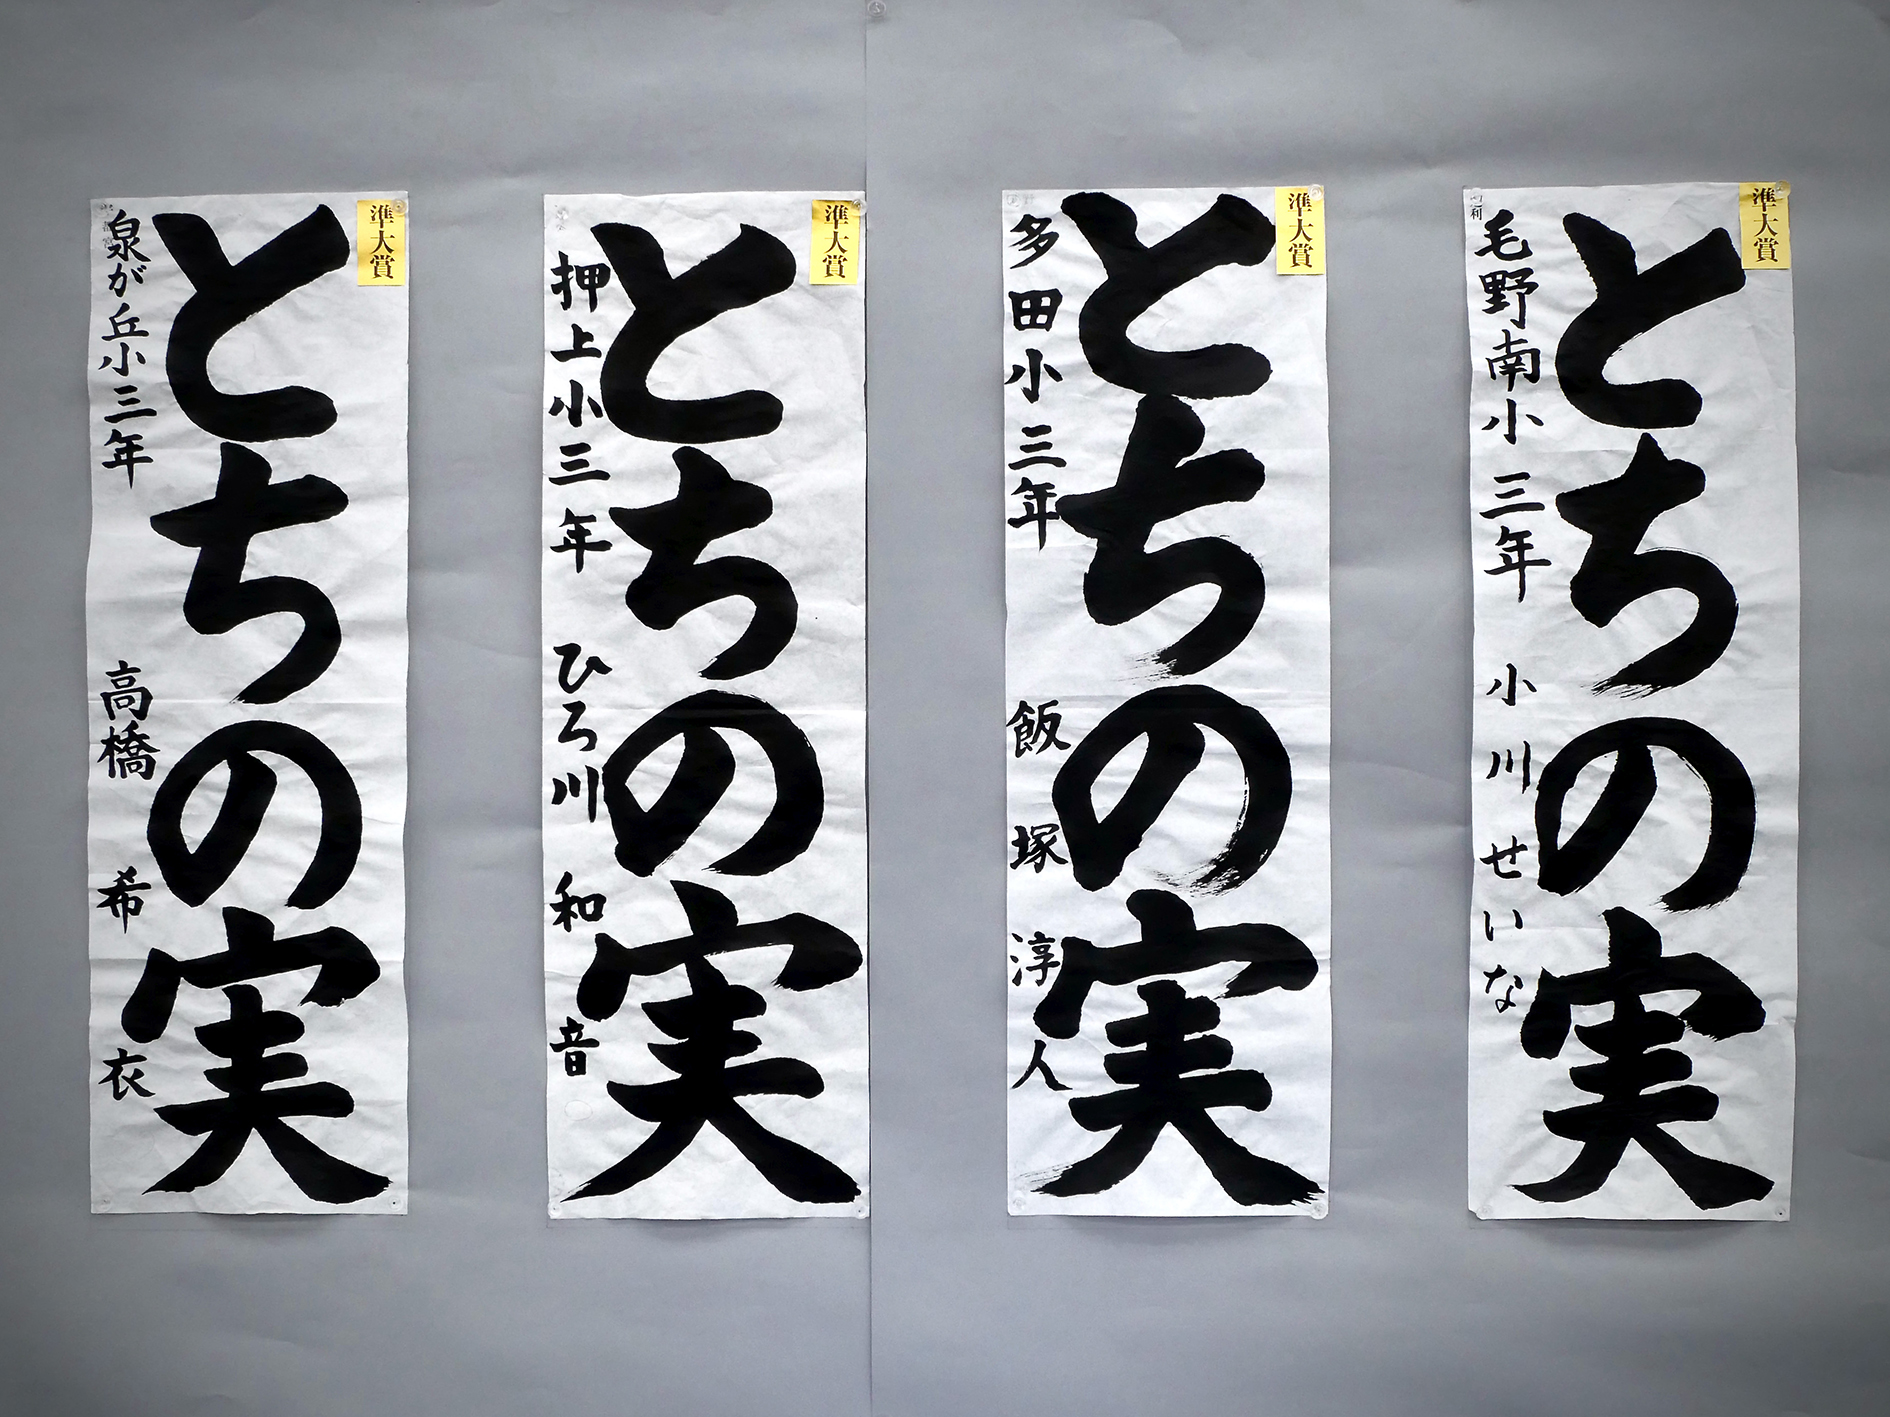 準大賞
とちの実
毛野南小三年 小川せいな
準大賞
とちの実
多田小三年 飯塚淳人
準大賞
とちの実
押上小三年 ひろ川和音
準大賞
とちの実
泉が丘小三年 高橋希衣